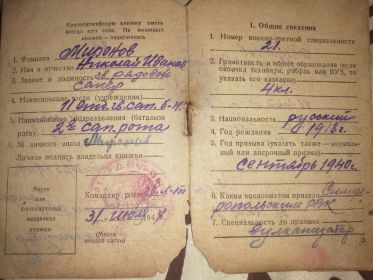 Красноармейскую книжку иметь
всегда при себе. Не имеющих
книжек — задерживать
1. Фамилия Миронов
2. Имя и отчество Николай Иванов
3. Звание и должность гв. рядовой
сапер
4. Наименование части (учреждения)
11 Отд. гв. сап. б-н
5. Наименование подразделения (батальон
рота) 2я сап. рота
6. № личного знака
Личная подпись владельца книжки
Место
для
фотокарточки
владельца
книжки
Командир роты
31 194
(Место
печати части)
I. Общие сведения
1. Номер военно-учетной специальности
21.
2. Грамотность и общее образование (если
окончил техникум, рабфак или ВУЗ, то
указать его название)
4 кл.
3. Национальность русский
4. Год рождения 1913 г.
5. Год призыва (указать также — нор-
мальный или досрочный призыв)
сентябрь 1940 г.
6. Каким военкоматом призван Симфе-
ропольским РВК
7. Специальность до призыва
вулканизатор